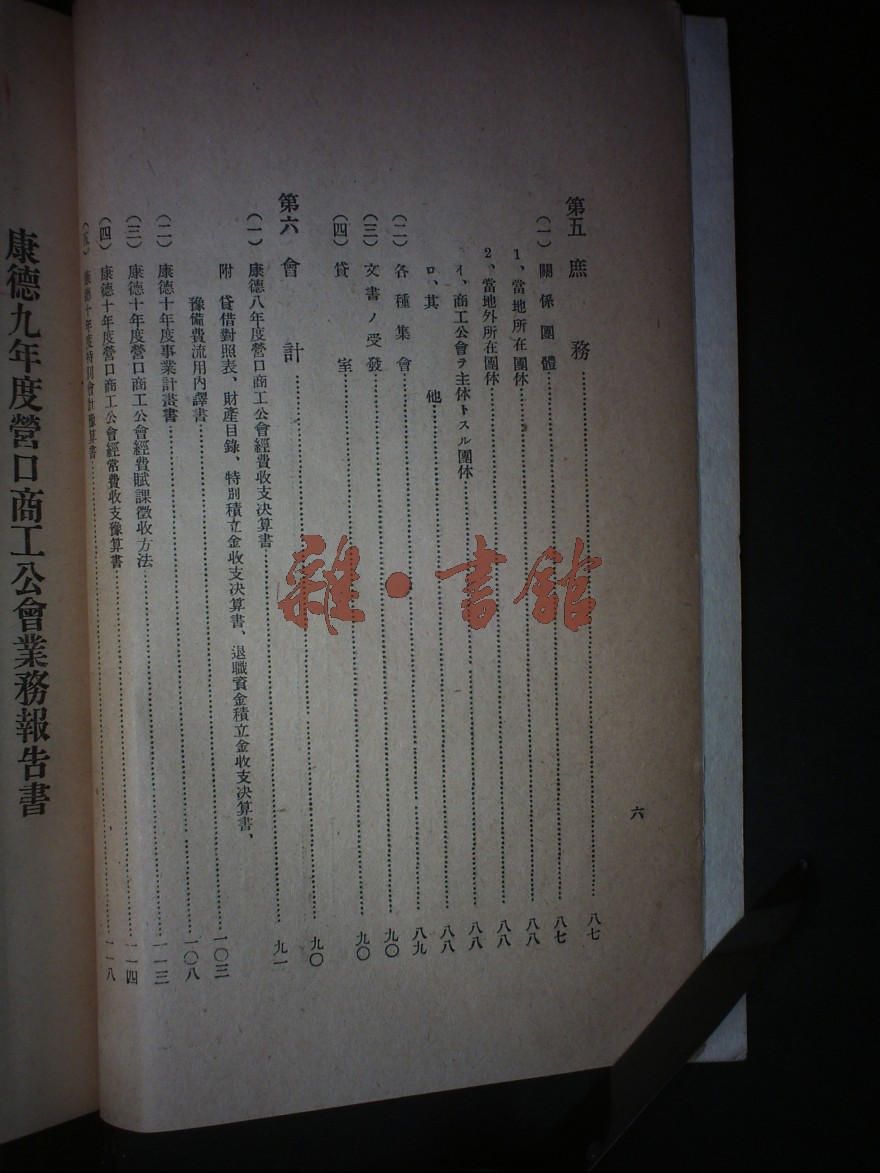 六
第五 庶務……八七
(一) 關係團體……八七
1、當地所在團体……八八
2、當地外所在團体……八八
イ、商工公會ヲ主体トスル團体……八八
ロ、其他……八八
(二) 各種集會……八九
(三) 文書ノ受發……九〇
(四) 貸室……九〇
第六 會計……九〇
(一) 康德八年度營口商工公會經費收支決算書……九一
附 貸借對照表、財產目錄、特別積立金收支決算書、退職資金積立金收支決算書、
豫備費流用內譯書……一〇三
(二) 康德十年度事業計畫書……一〇八
(三) 康德十年度營口商工公會經費賦課徵收方法……一一三
(四) 康德十年度營口商工公會經常費收支豫算書……一一四
(五) 康德十年度特別會計豫算書……一一八
康德九年度營口商工公會業務報告書
雜·書館